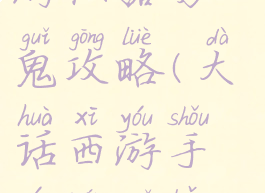 guǐ gōng lüè dà
鬼攻略(大
huà xī yóu shǒu
话西游手